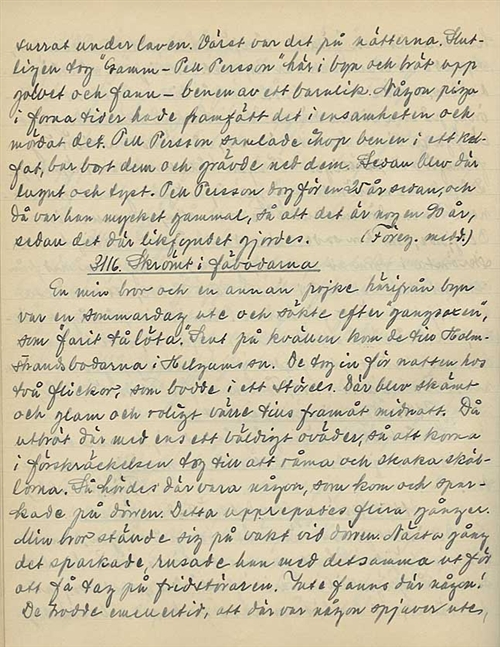 turrat under laven. Värst var det på nätterna. Slut-
ligen tog "Gamm-Pell Persson" här i byn och bröt upp
golvet och fann - benen av ett barnlik. Någon piga
i forna tider hade framfött det i ensamheten och
mördat det. Pell Persson samlade ihop benen i ett
fat, bar bort dem och grävde ned dem. Sedan blev där
lugnt och tyst. Pell Persson dog för en 20 år sedan, och
då var han mycket gammal, så att det är nog en 90 år,
sedan det där likfyndet gjordes. (Föreg. medd.)
3116. Skrömt i fäbodarna
En min bror och en annan pojke härifrån byn
var en sommardag ute och sökte efter "gangsoxen",
som "farit tå löta". Sent på kvällen kom de till Holm-
strandsbodarna i Helgums sn. De tog in för natten hos
två flickor, som bodde i ett störels. Där blev skämt
och glam och roligt värre tills framåt midnatt. Då
utbröt där med ens ett väldigt oväder, så att korna
i förskräckelsen tog till att råma och skaka skäl-
lorna. Så hördes där vara någon, som kom och spar-
kade på dörren. Detta upprepades flera gånger.
Min bror ställde sig på vakt vid dörren. Nästa gång
det sparkade, rusade han med detsamma ut för
att få tag på fridstöraren. Inte fanns där någon!
De trodde emellertid, att där var någon spjuver utes,